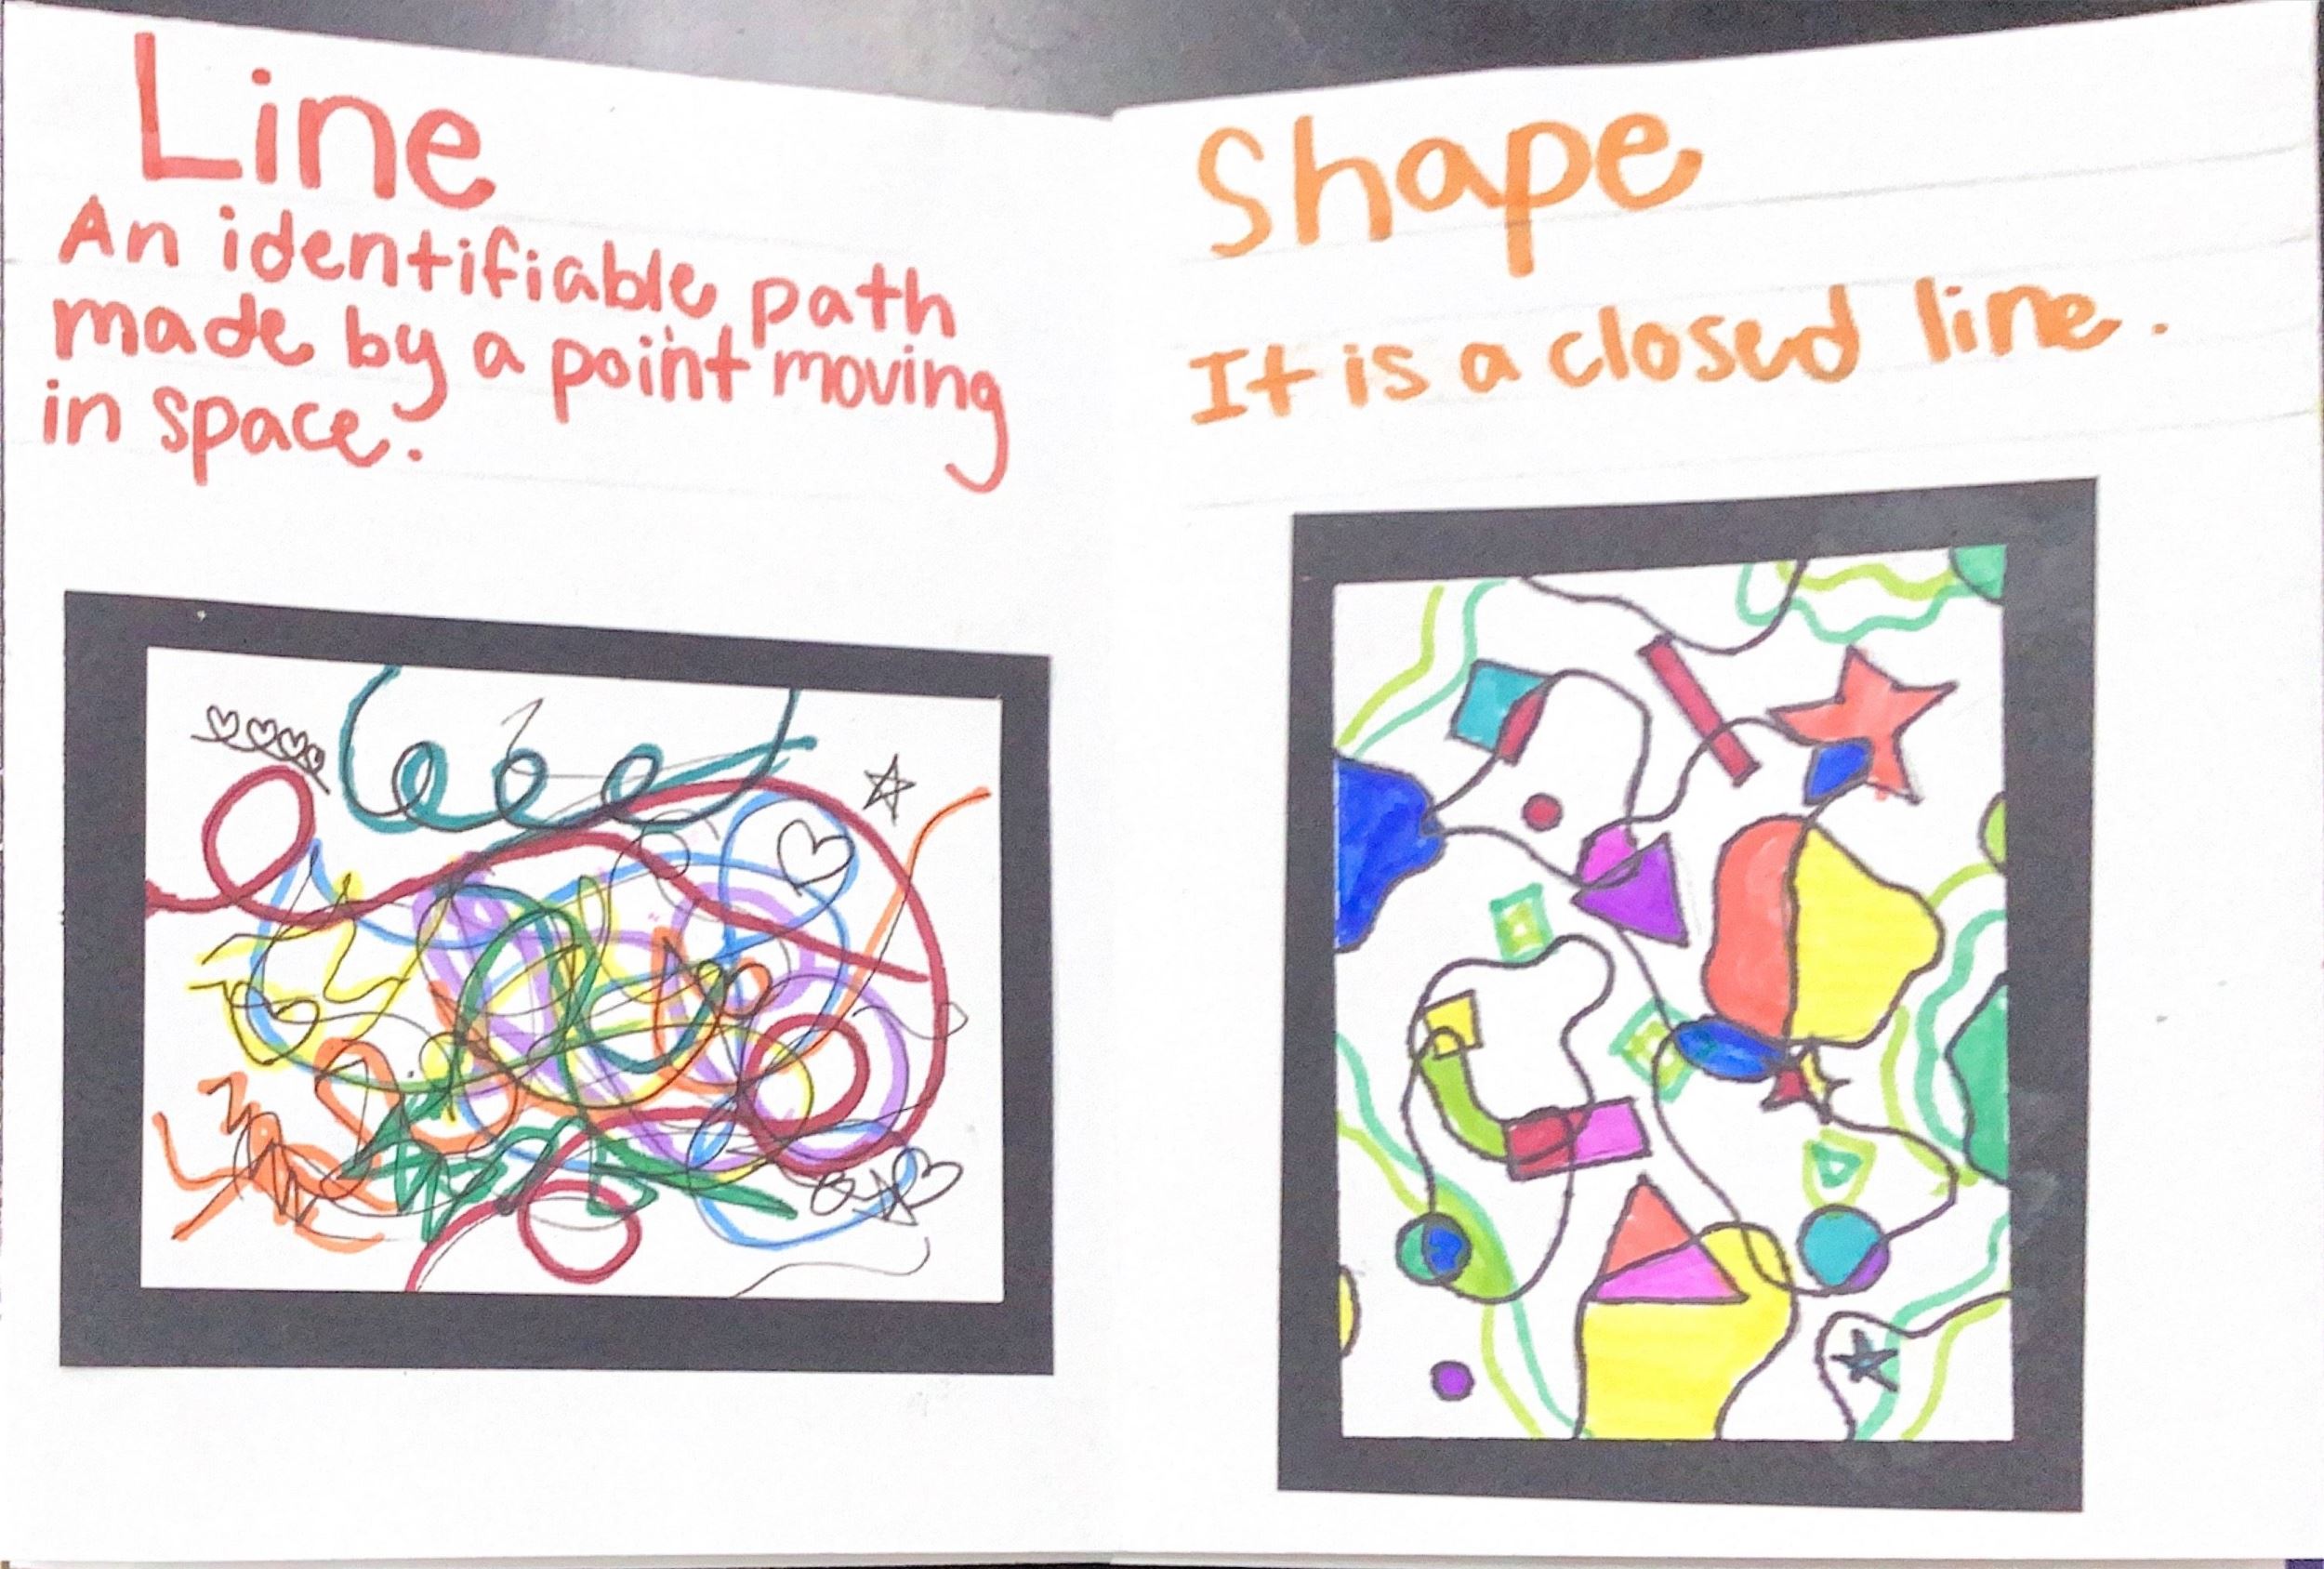 Line
An identifiable path
made by a point moving
in space.
Shape
It is a closed line.